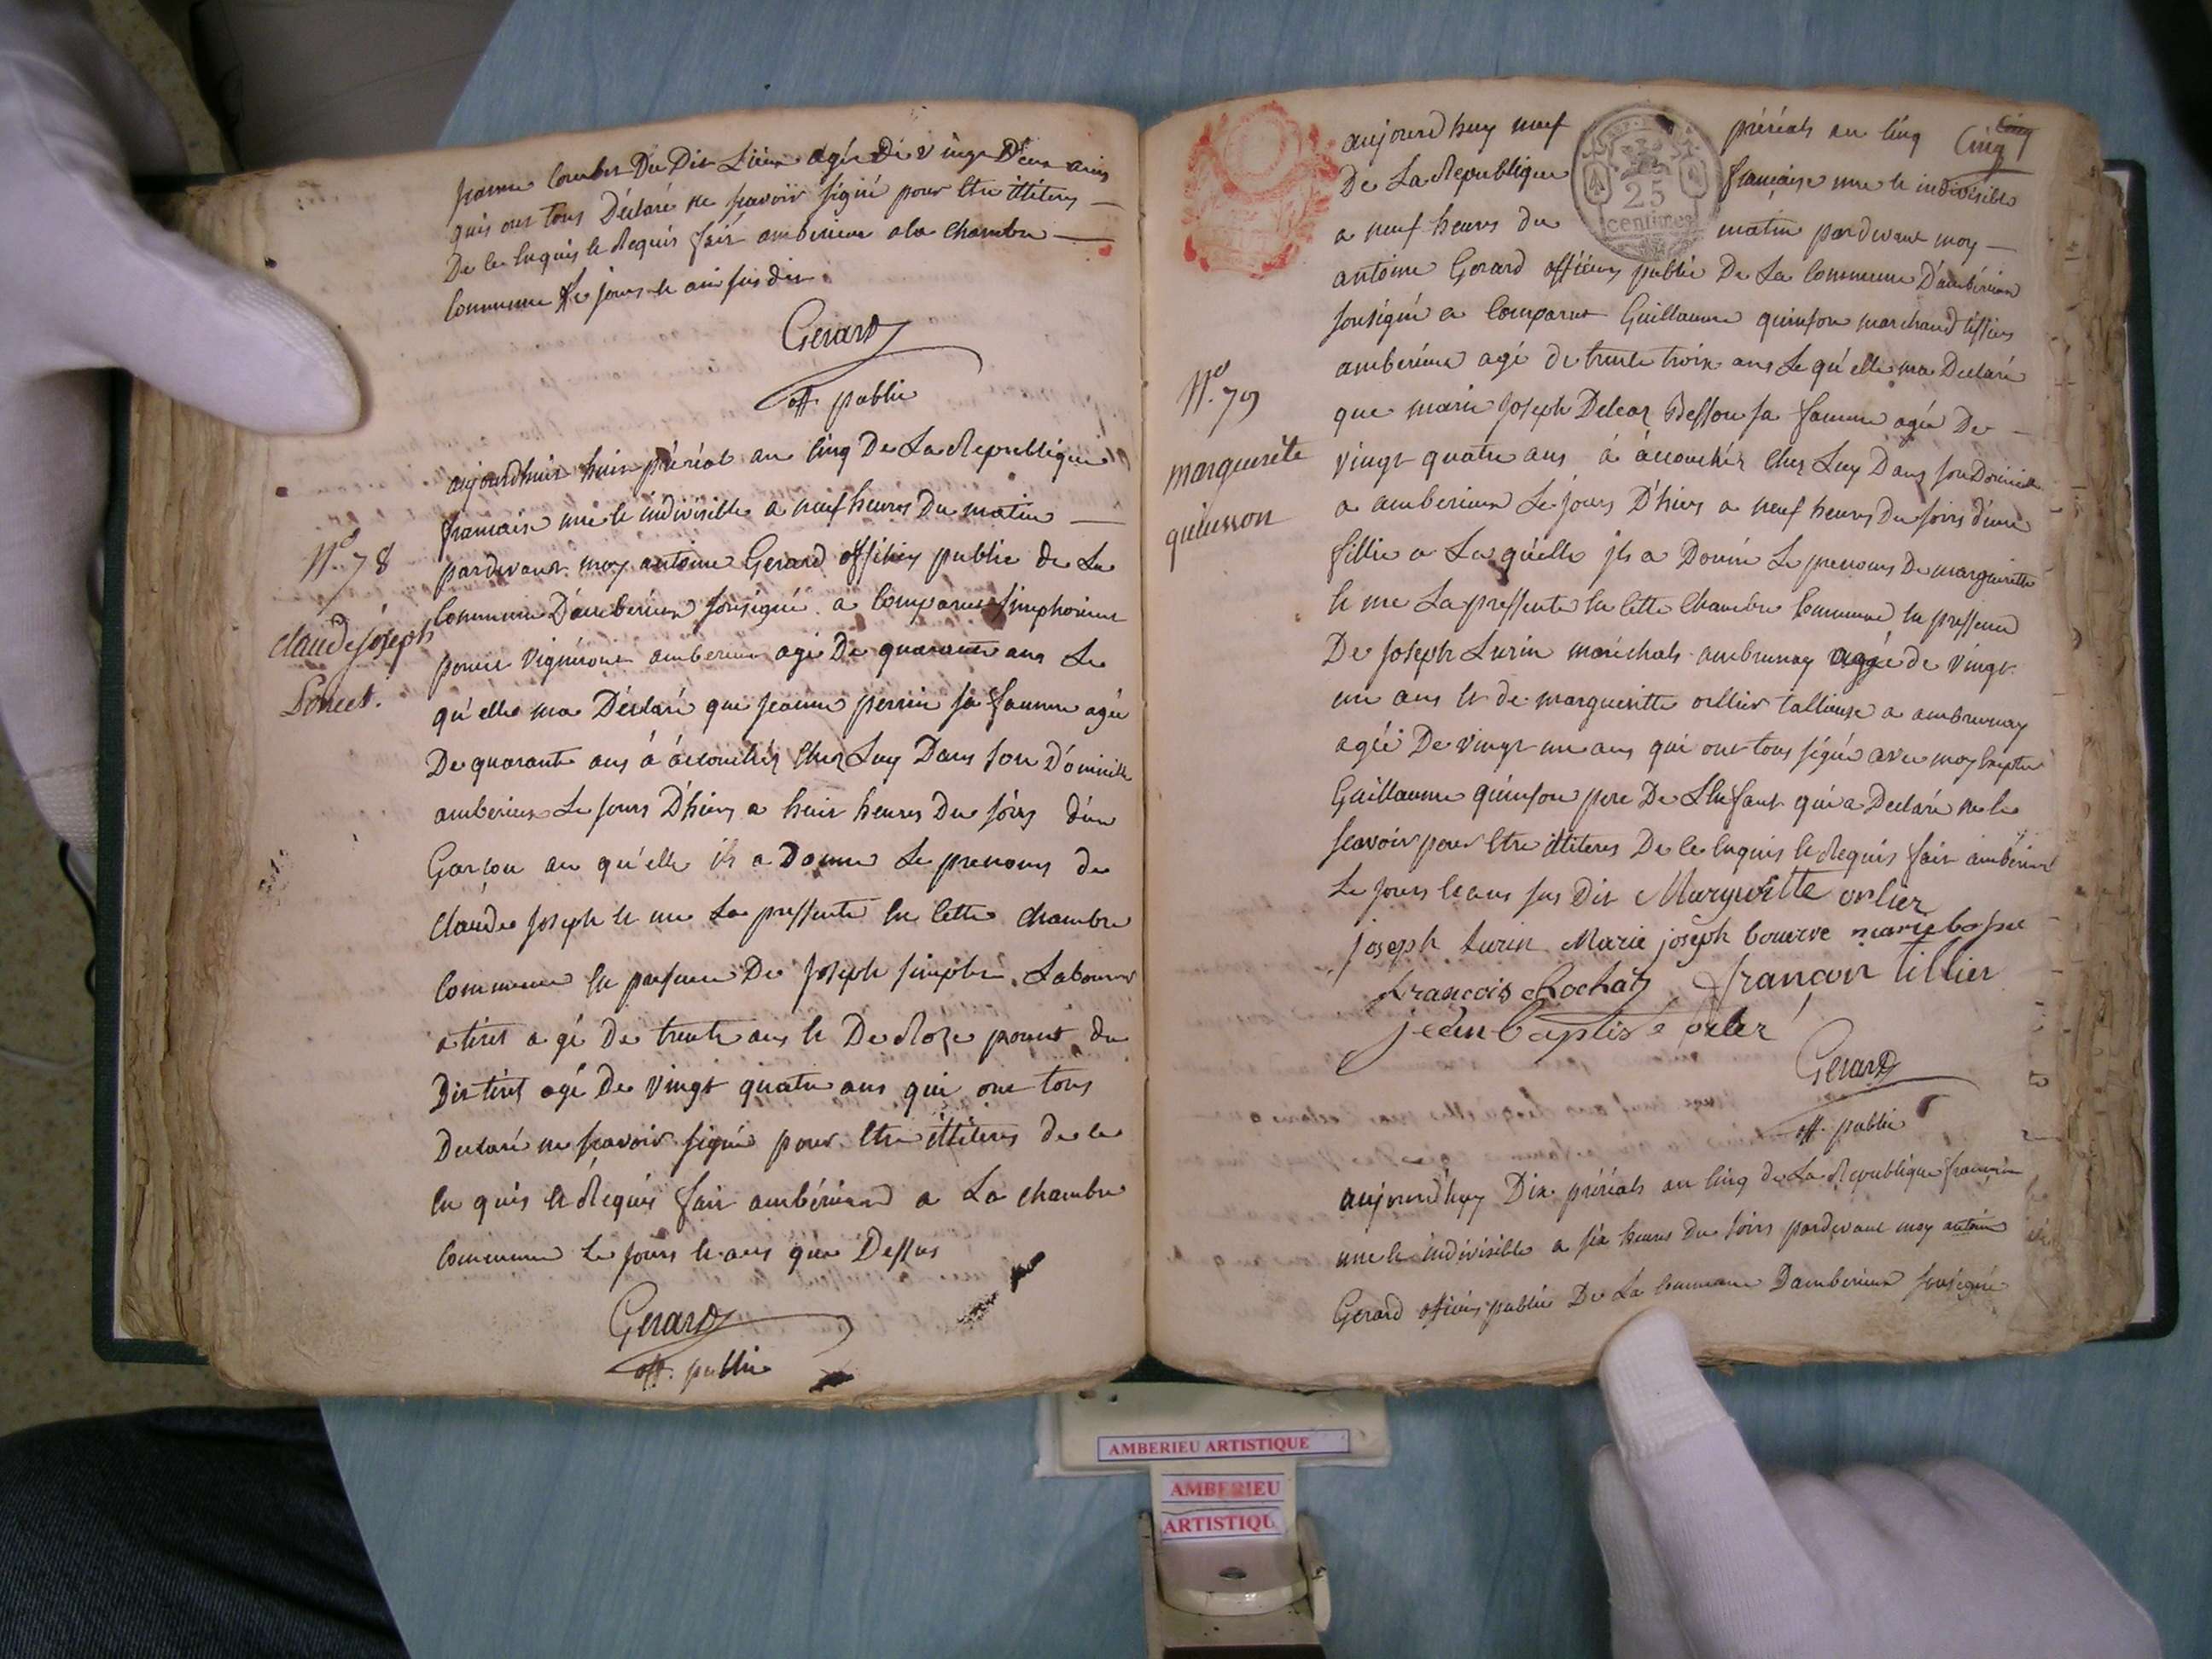 jeanne Combet Du Dit Lieux agée De vingt Deux ans
quis ont tous Déclaré ne scavoir signé pour Etre illiteres
De Ce Enquis et Requis fait amberieux a la Chambre
Commune Le jours et ans sus dit
Gerard
off. public
N.º 78
claude joseph
Poncet.
aujourdhuit huit prérial an Cinq De La Republique
francaise une et indivisible a neuf heures Du matin
pardevant moy antoine Gerard officiey public de La
Commune D'amberieux sousigné a Comparut simphorient
poncet vigneront amberieux agé De quarante ans Le
qu'elle ma Déclaré que jeanne perrin sa famme agée
De quarante ans á áccouchéz Chez Luy Dans son Dómicille
amberieux Le jours D'hiers a huit heures Du soirs d'un
Garcon au qu'elle ils a Donné Le prenoms de
claude joseph et me La pressente En Cette chambre
Commune En presence De joseph Laboureur
a tiret agé De trente ans et De Roze poncet du
Dit tiret agé De vingt quatre ans qui ont tous
Declaré ne scavoir signé pour Etre illiteres de Ce
En quis et Requis fait ambérieux a La chambre
Commune Le jours et ans que Dessus
Gerard
off. public
aujourdhuy neuf prérials an Cinq Cinq
De La Republique francaise une et indivisible
25
centimes
a neuf heures du matin pardevant moy
antoine Gerard officiey public De La Commune D'ambérieux
sousigné a Comparut Guillaume quinson marchand tissier
amberieux agé de trente troix ans Le qu'elle ma Declaré
N.º 79
marguerite
quinsson
que marie joseph Beſson sa famme agée De
vingt quatre ans á áccouchéz Chez Luy Dans son Domicille
a amberieux Le jours D'hiers a neuf heures Du soirs d'une
fillie a La quelle ils a Donné Le prenoms De margueritte
et me La pressente En Cette Chambre Commune En pressence
De joseph Lurin maréchals ambronay agée de vingt
un ans et de margueritte orllier tallieuse a ambronay
agée De vingt un ans qui ont tous signé avec moy Excepter
Guillaume quinson pere De LEnfant qui a Declaré ne le
scavoir pour Etre illiteres De Ce Enquis et Requis fait ambérieux
Le jours et ans sus Dit Marguerite orlier
joseph Lurin Marie joseph
françois Rochat françoir tillier
jean baptiste orlier
Gerard
off. public
aujourdhuy Dix prérials an Cinq de La Republique francaise
une et indivisible a six heures Du soirs pardevant moy antoine
Gerard officiés public De La Commune Damberieux sousigné
AMBERIEU ARTISTIQUE
AMBERIEU
ARTISTIQU